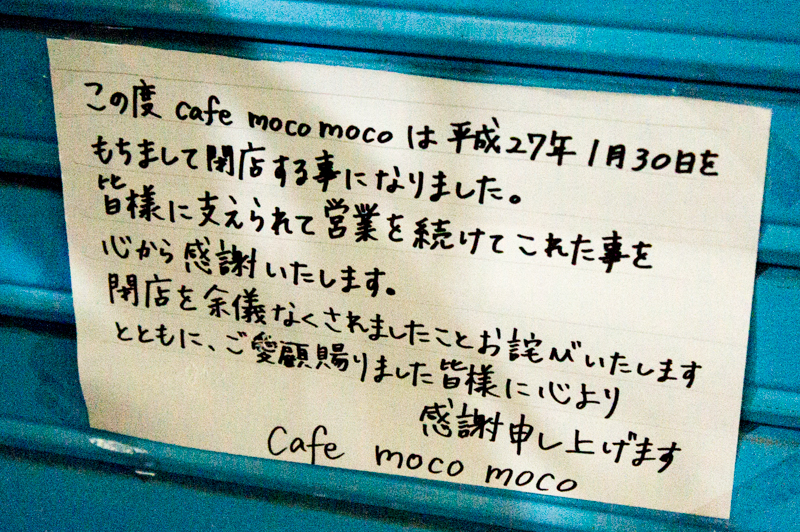 この度 cafe moco moco は 平成27年 1月30日を
もちまして閉店する事になりました。
皆様に支えられて営業を続けてこれた事を
心から感謝いたします。
閉店を余儀なくされましたことお詫びいたします
とともに、ご愛顧賜りました皆様に心より
感謝申し上げます
Cafe moco moco